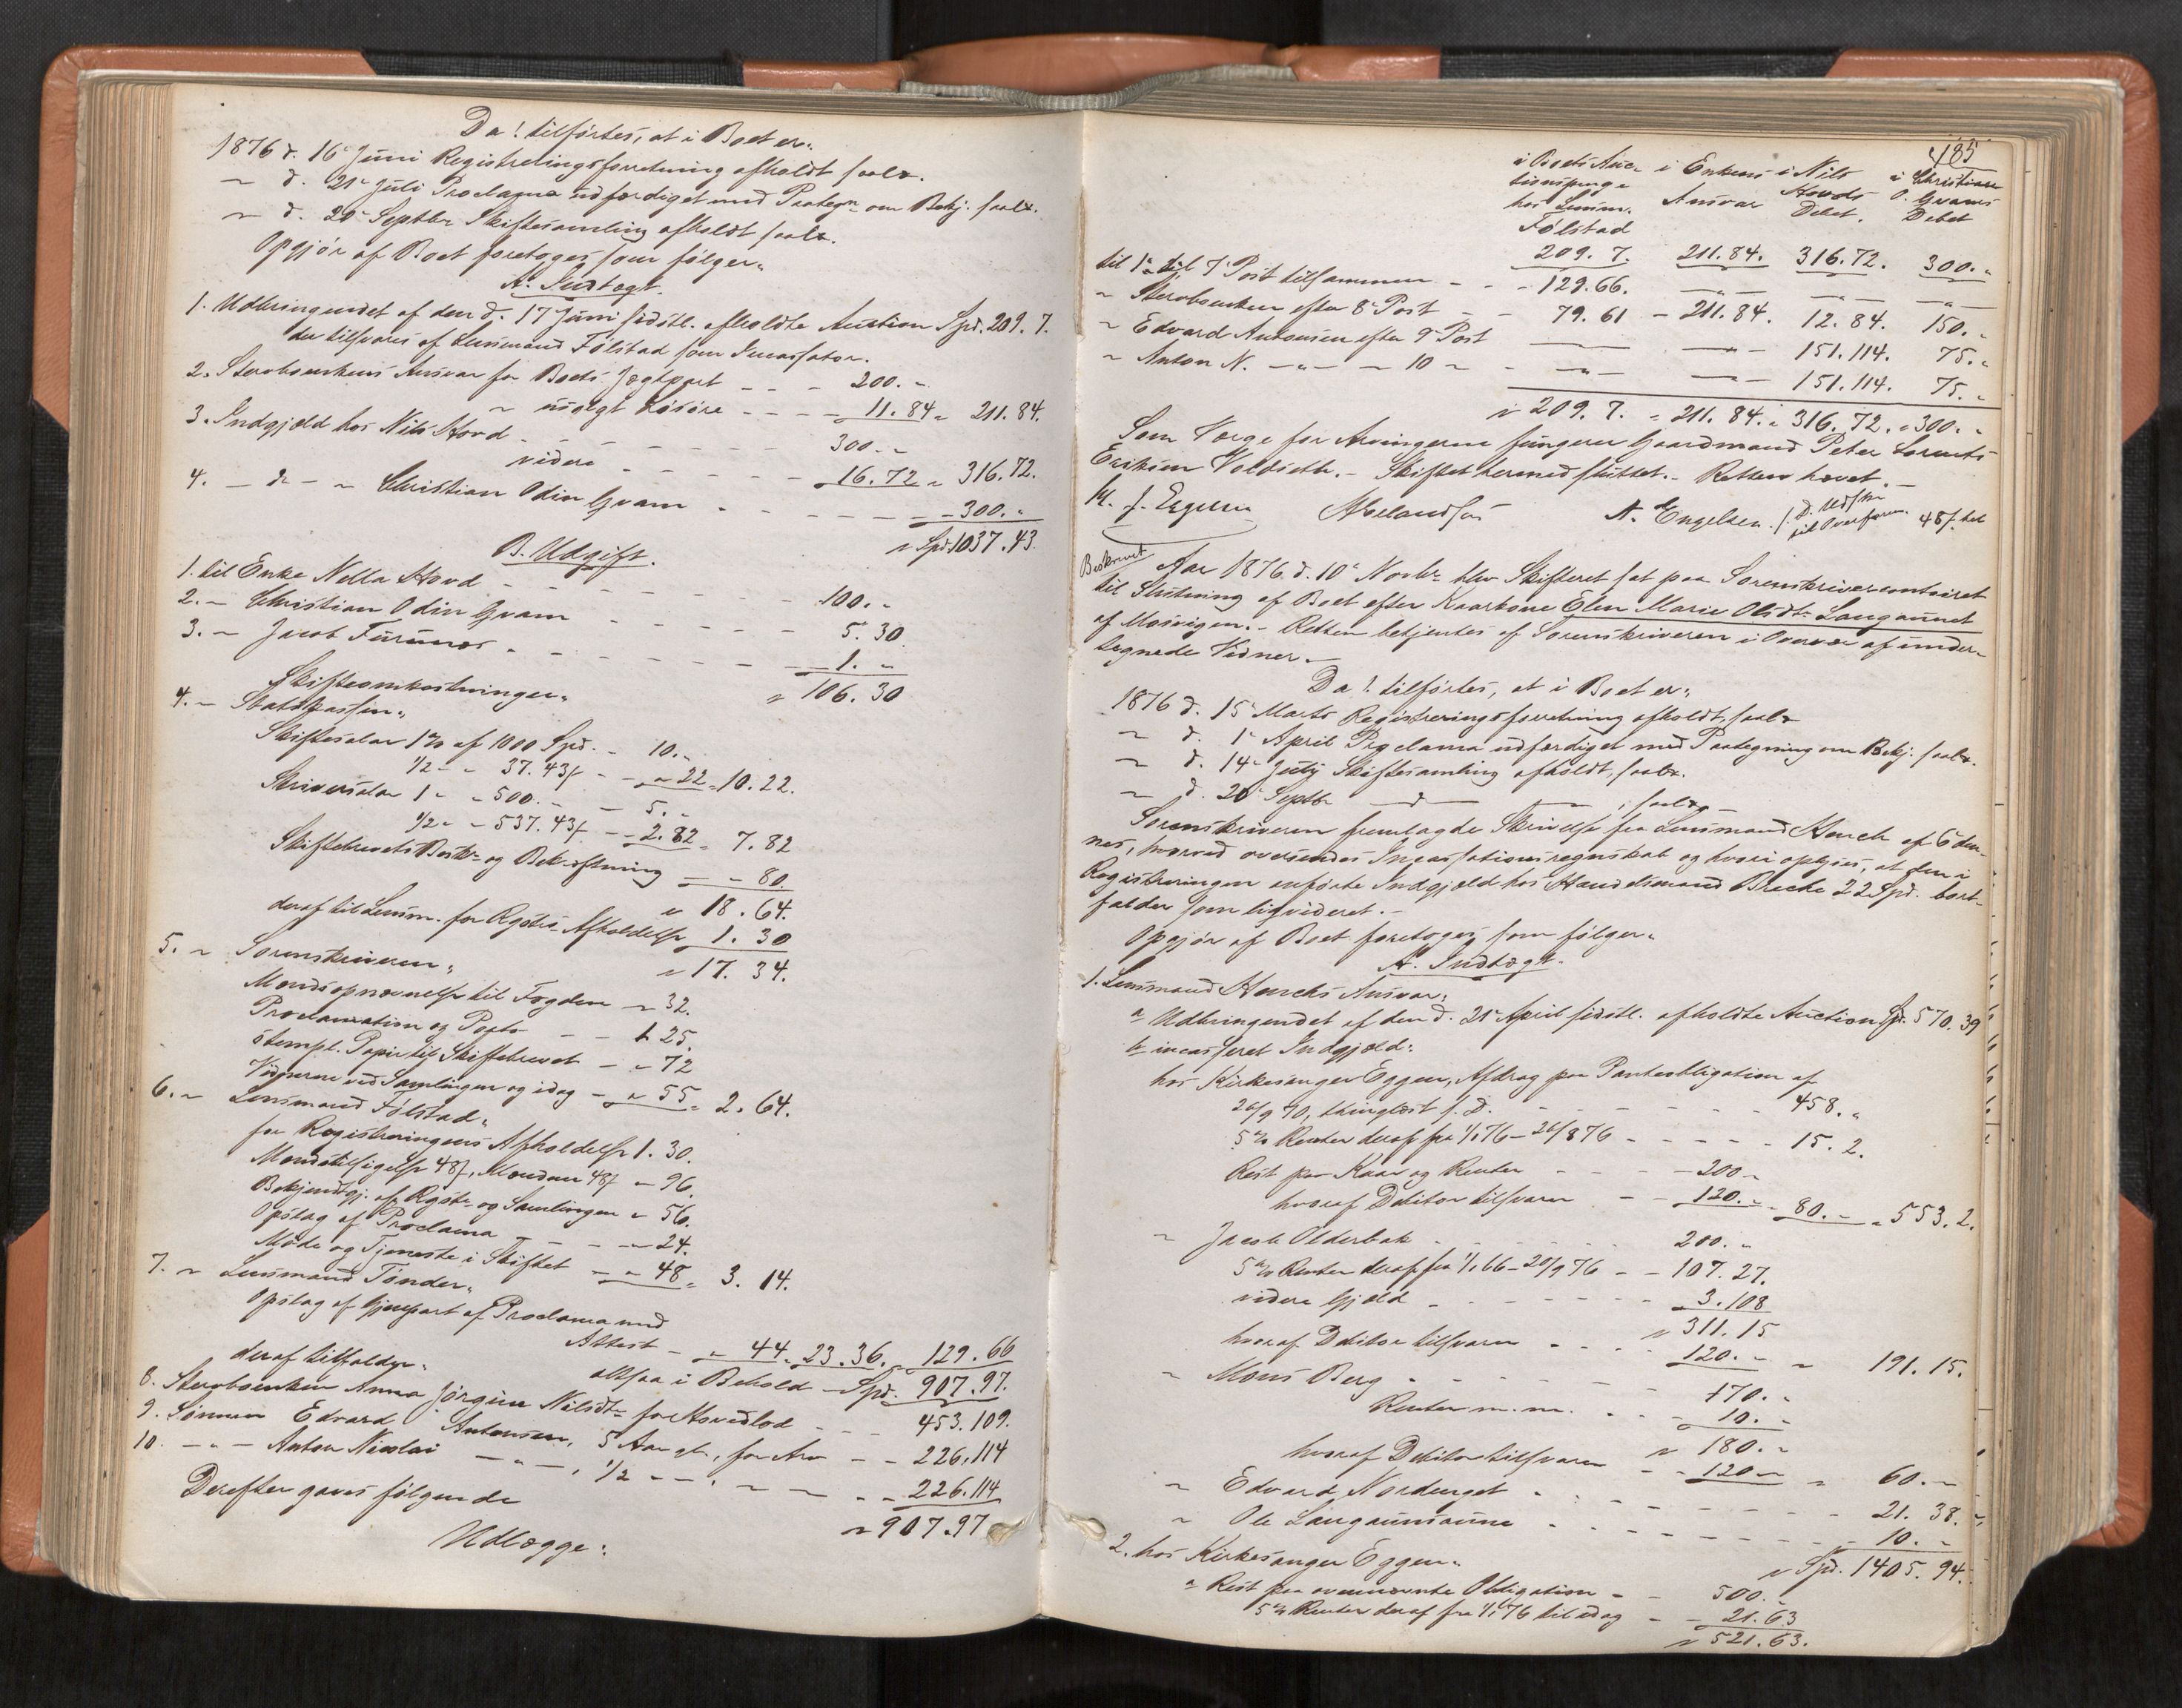 Da! tilførtes, at i Boet er:
1876 d. 16de Juni Registreringsforretning afholdt saal.
" d. 21de Juli Proclama udfærdiget med Paategn. om Bekj. saal.
" d. 20 Septbr Skiftesamling afholdt saal.
Opgjør af Boet foretoges som følger:
A. Indtægt.
1. Udbringendet af den d. 17 Juni sidstl. afholdte Auction Spd. 209. 7.
der tilsvares af Lensmand Følstad som Incassator.
2. Sterboenkens Ansvar for Boets Jægtpart - - - 200. "
" usolgt Løsøre - - - - 11. 84 " 211. 84.
3. Indgjæld hos Nils Hovd - - - 300. "
videre - - - 16. 72 " 316. 72.
4. - d - " Christian Odin Gvam - - - - 300. "
" Spd. 1037. 43.
B. Udgift.
1. til Enke Nella Hovd - - - 100. "
2. - Christian Odin Gvam - - - 5. 30
3. - Jacob Furunes - - - 1. "
" 106. 30
Skifteomkostninger:
4. - Statskassen:
Skiftesalær 1% af 1000 Spd. - 10. -
1/2 - " 37. 43ß - - " 22 " 10. 22.
Skriversalær 1 " " 500. - - 5. "
1/2 " - 537. 43ß - - 2. 82 " 7. 82
Skiftebrevets Beskr. og Bekræftning - " 80.
" 18. 64.
deraf til Lensm. for Rgstrs. Afholdelse 1. 30
" 17. 34.
5. " Sorenskriveren:
Mændsopnævnelse til Fogden " 32.
Proclamation og Porto - 1. 25.
stempl. Papir til Skiftebrevet - " 72
Vidnerne ved Samlingen og idag - " 55 " 2. 64.
6. " Lensmand Følstad:
for Registreringens Afholdelse 1. 30.
Mændstilsigelse 48ß, Mændene 48ß " 96.
Bekjendtgj. af Rgstr. og Samlingen " 56.
Opslag af Proclama - - " 24.
Møde og Tjeneste i Skiftet - " 48 " 3. 14.
7. " Lensmand Tønder:
Opslag af Gjenpart af Proclama med
Attest - " 44. 23. 36. " 129. 66
altsaa i Behold - Spd. 907. 97.
deraf tilfalder:
8. Sterboenken Anna Jørgine Nilsdtr for Hovedlod - - - 453. 109.
9. Sønnen Edvard Antonsen, 5 Aar gl., for Arv - - 226. 114
10. - " - Anton Nicolai - " -, 1/2 - " - " - - 226. 114
" 907. 97
Derefter gaves følgende
Udlægge:
485
i Boets Auc-
tionspenge
hos Lensm.
Følstad
i Enkens
Ansvar
i Nils
Hovds
Debet.
i Christian
O. Gvams
Debet
209. 7. 211. 84. 316. 72. 300. "
til 1ste til 7de Post tilsammen - - - 129. 66. - " - - " - - " -
" Sterboenken efter 8de Post - - 79. 61 - 211. 84. 12. 84. 150. "
" Edvard Antonsen efter 9de Post - - 151. 114. 75. "
" Anton N. - " - - 10 " - - " - - " - 151. 114. 75. "
" 209. 7. " 211. 84. " 316. 72. " 300. "
Som Værge for Arvingerne fungerer Gaardmand Peter Lorents
Eriksen Voldseth. - Skiftet hermed sluttet. - Retten hævet. -
M. J. Eggen A. Engelsen. 48ß bet
Beskrevet
Aar 1876 d. 10de Novbr. blev Skifteret sat paa Sorenskrivercontoiret
til Slutning af Boet efter Kaarkone Elen Marie Olsdtr. Langaunet
af Mosvigen. - Retten betjentes af Sorenskriveren i Overvær af under-
tegnede Vidner. -
Da! tilførtes, at i Boet er:
1876 d. 15de Marts Registreringsforretning afholdt, saal.
" d. 1ste April Proclama udfærdiget med Paategning om Bekj. saal.
" d. 14de Juli Skiftesamling afholdt, saal.
" d. 20de Septbr - d - - " - , saal. -
Sorenskriveren fremlagde Skrivelse fra Lensmand Hauch af 6 den-
nes, hvorved oversendes Incassationsregnskab og hvori opgives, at den i
Registreringen anførte Indgjæld hos Handelsmand Brecke 22 Spd. bort-
falder som liqvideret. -
Opgjør af Boet foretoges som følger:
A. Indtægt.
1. Lensmand Hauchs Ansvar:
a Udbringendet af den d. 21de April sidstl. afholdte Auction Spd. 570. 39
b incasseret Indgjæld:
hos Kirkesanger Eggen, Afdrag paa Panteobligation af
26/9 70, thinglæst s. D. - - - 458. "
5% Renter deraf fra 1/1 76 - 26/8 76 - - - 15. 2.
Rest paa Kaar og Renter - - - 200 "
hvoraf Debitor tilsvarer - - 120. - " 80. - " 553. 2.
" Jacob Olderbak - - - 200. "
5% Renter deraf fra 1/1 66 - 20/9 76 - - 107. 27.
videre Gjæld - - - 3. 108
" 311. 15
hvoraf Debitor tilsvarer - - - 120. - " 191. 15.
" Mons Berg - - - 170. "
Renter m. m. - - 10. -
" 180. "
hvoraf Debitor tilsvarer - - 120 - " 60. -
" Edvard Nordenget - - - 21. 38.
" Ole Langaunsaune - - - 10. "
" Spd. 1405. 94.
2. hos Kirkesanger Eggen:
a Rest paa ovennævnte Obligation - 500. -
5% Renter deraf fra 1/1 76 til idag - - 21. 63
" 521. 63.